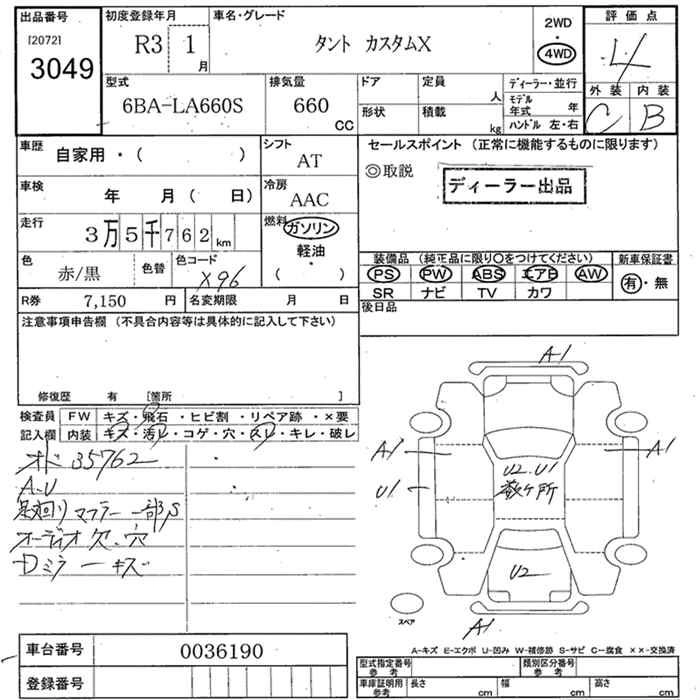 出品番号 初度登録年月 車名・グレード 評価点
[2072]
3049
R3 1 月 タント カスタムX 2WD 4WD 4
外装 内装
C B
型式 排気量 ドア 定員 人 ディーラー・並行
6BA-LA660S 660 CC 形状 積載 kg モデル年式 年
ハンドル 左・右
車歴 自家用・( ) シフト AT
セールスポイント (正常に機能するものに限ります)
◎取説
ディーラー出品
車検 年 月( 日) 冷房 AAC
走行 3万5千762km 燃料 ガソリン
軽油
( ・ )
色 赤/黒 色替 色コード X96
R券 7,150 円 名変期限 月 日
装備品 (純正品に限り〇をつけてください) 新車保証書
PS PW ABS エアB AW 有・無
SR ナビ TV カワ
後日品
注意事項申告欄 (不具合内容等は具体的に記入して下さい)
修復歴 有 [箇所 ]
検査員 FW キズ・飛石・ヒビ割・リペア跡・×要
記入欄 内装 キズ・汚レ・コゲ・穴・スレ・キレ・破レ
オド 35762
A.U
足廻り マフラー 一部S
オーディオ欠.穴
Dミラーキズ
A1
A1 A1
U2.U1
数ヶ所
U1
U2
スペア
A1
A-キズ E-エクボ U-凹み W-補修跡 S-サビ C-腐食 ××-交換済
車台番号 0036190
登録番号
型式指定番号 参考 類別区分番号 参考
車庫証明用 参考 長さ cm 幅 cm 高さ cm